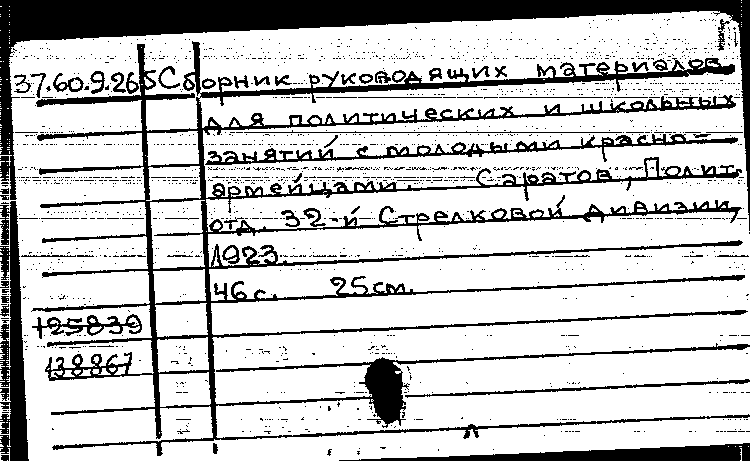 37.60.9.265 Сборник руководящих материалов
для политических и школьных
занятий с молодыми красно-
армейцами. Саратов, Полит.
отд. 32-й Стрелковой дивизии,
1923.
46 с. 25 см.
125839
138867